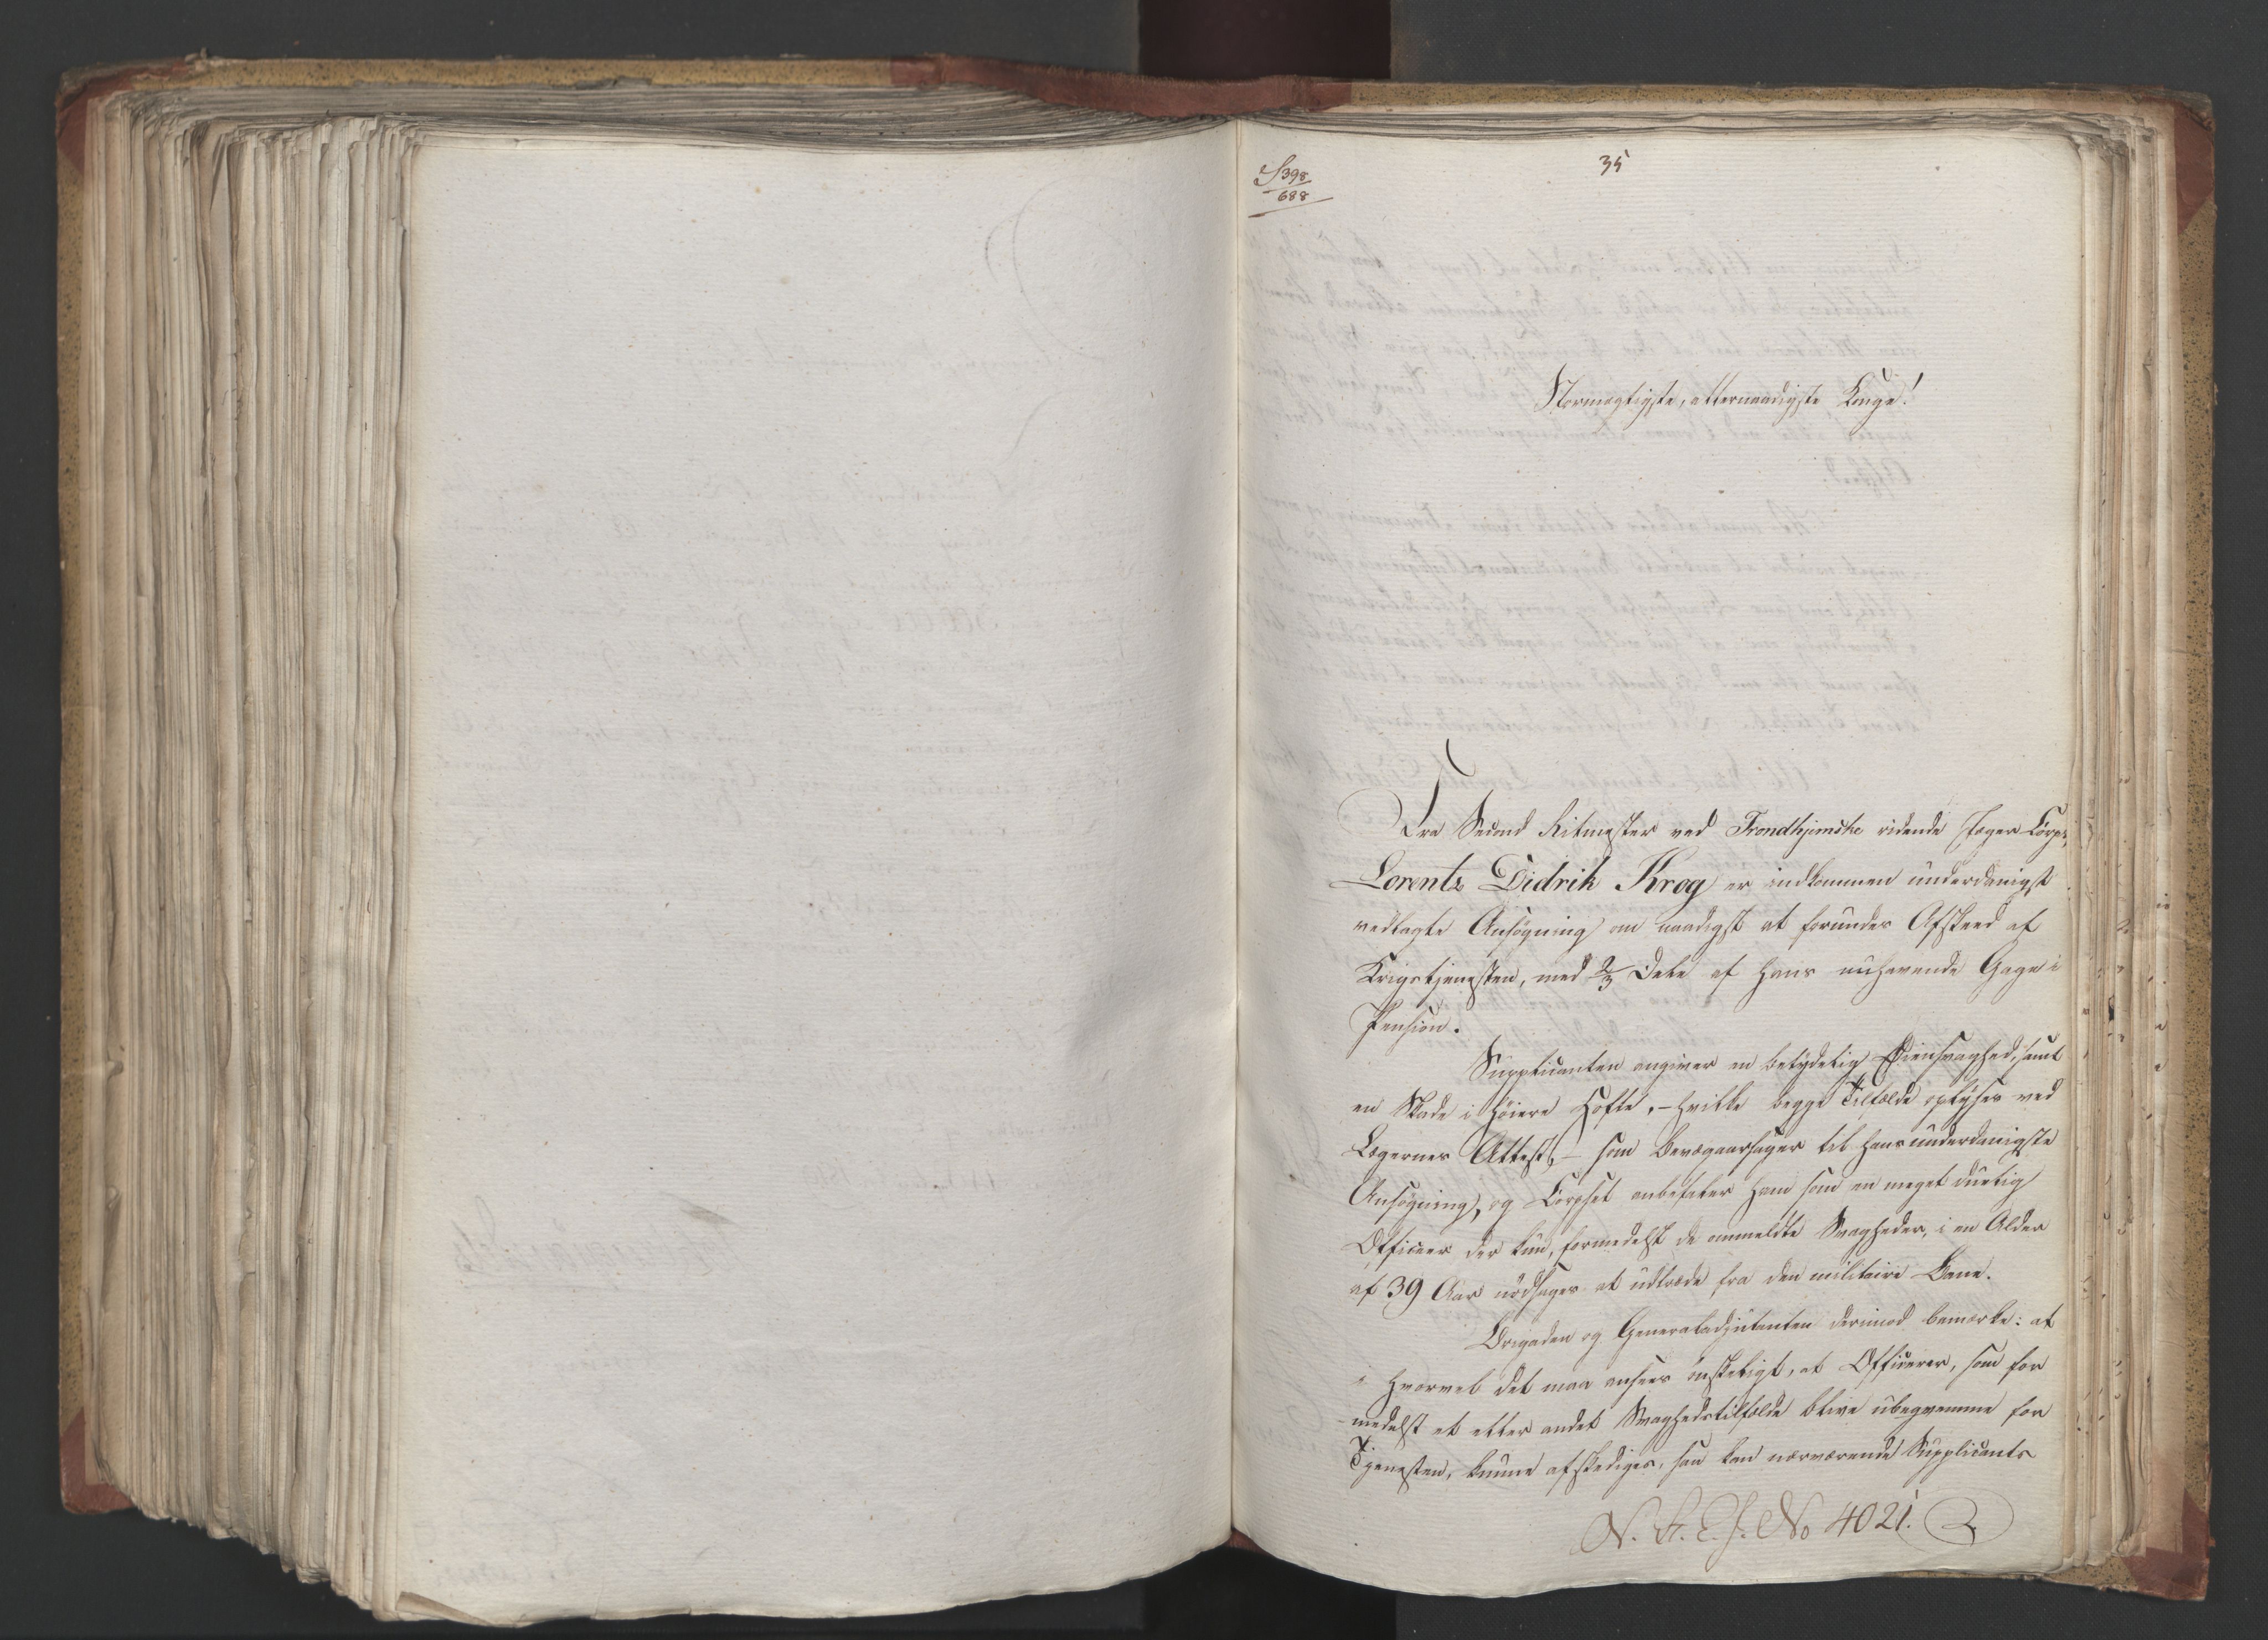 S 398
688
35
Stormægtigste, allernaadigste Konge!
Fra Second Ritmester ved Trondhjemske ridende Jæger-Corps,
Lorentz Didrik Krog er indkommen underdanigst
vedlagte Ansøgning om naadigst at forundes Afskeed af
Krigstjenesten, med 2/3 Dele af hans nuhavende Gage i
Pension.
Supplicanten angiver en betydelig Øiensvaghed, samt
en Skade i høiere Hofte, – hvilke begge Tilfælde oplyses ved
Lægernes Attest, – som Bevægaarsager til hans underdanigste
Ansøgning, og Corpset anbefaler ham som en meget duelig
Officeer der kun, formedelst de anmeldte Svagheder, i en Alder
af 39 Aar nödsages at udtræde fra den militaire Bane.
Brigaden og Generaladjutanten derimod bemærke: at
i hvorvel det maa ansees ønskeligt, at Officerer, som for
medelst et eller andet Svaghedstilfælde blive ubeqvemme for
Tjenesten, kunne afskediges, saa kan nærværende Supplicants
N. St. E. J. No 4021. 2